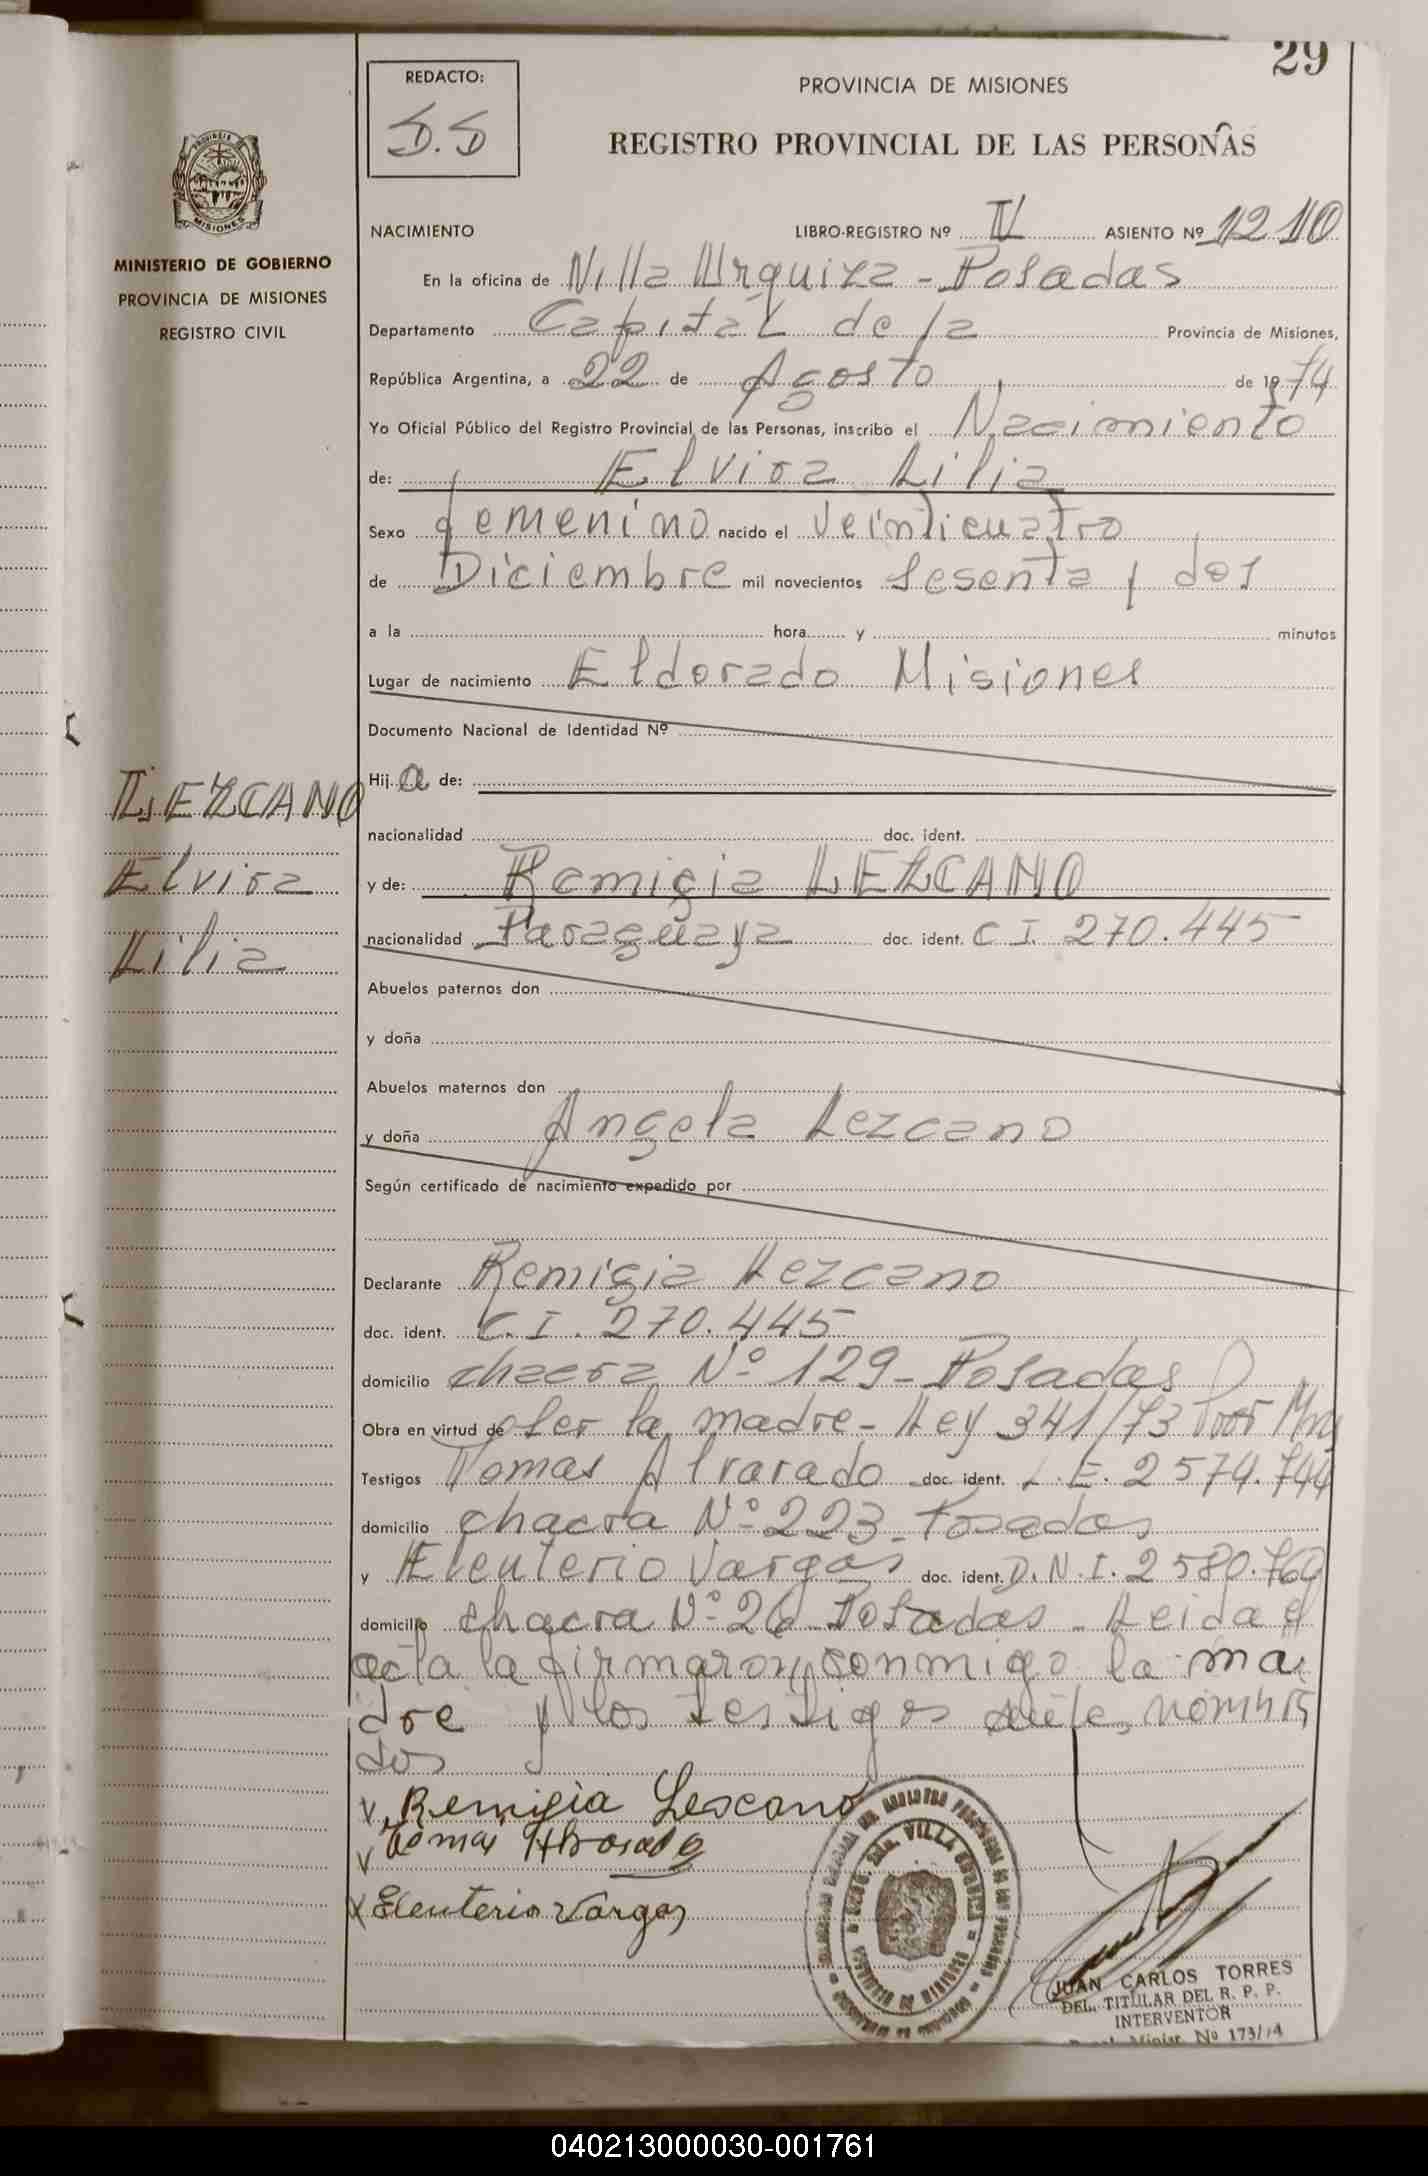 29
REDACTO:
S.S
PROVINCIA DE MISIONES
REGISTRO PROVINCIAL DE LAS PERSONAS
MISIONES
MINISTERIO DE GOBIERNO
PROVINCIA DE MISIONES
REGISTRO CIVIL
NACIMIENTO LIBRO-REGISTRO Nº IV ASIENTO Nº 1210
En la oficina de Villa Urquiza - Posadas
Departamento Capital de la Provincia de Misiones,
República Argentina, a 22 de Agosto de 1974
Yo Oficial Público del Registro Provincial de las Personas, inscribo el Nacimiento
de: Elvira Lilia
Sexo femenino nacido el veinticuatro
de Diciembre mil novecientos sesenta y dos
a la hora y minutos
Lugar de nacimiento Eldorado Misiones
Documento Nacional de Identidad Nº
Hija de:
nacionalidad doc. ident.
y de: Remigia LEZCANO
nacionalidad Paraguaya doc. ident. C I. 270.445
LEZCANO
Elvira
Lilia
Abuelos paternos don
y doña
Abuelos maternos don
y doña Angela Lezcano
Según certificado de nacimiento expedido por
Declarante Remigia Lezcano
doc. ident. C.I. 270.445
domicilio chacra Nº 129 - Posadas
Obra en virtud de ser la madre - Ley 341/73
Testigos Tomas Alvarado doc. ident. L.E. 2574.744
domicilio chacra Nº 223 - Posadas
y Eleuterio Vargas doc. ident. D.N.I. 2580.760
domicilio chacra Nº 26 Posadas - Leida el
acta la firmaron conmigo la ma
dre y los testigos
dos
Remigia Lescano
Tomas
Eleuterio Vargas
VILLA URQUIZA
PROVINCIA DE MISIONES
JUAN CARLOS TORRES
DEL. TITULAR DEL R. P. P.
INTERVENTOR
Nº 173/74
040213000030-001761